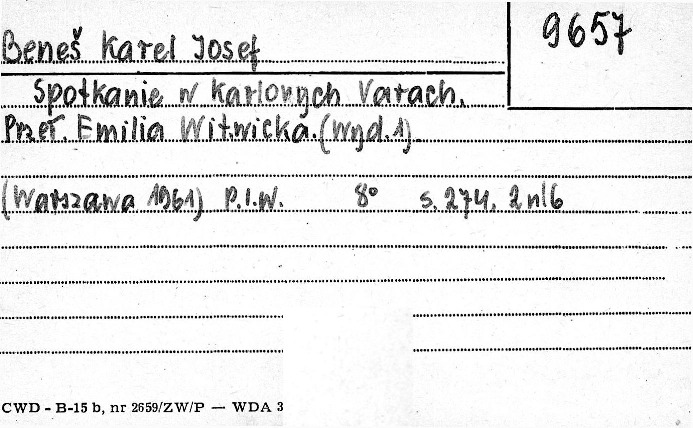 9657
Beneš Karel Josef
Spotkanie w Karlovych Varach.
Przeł. Emilia Witwicka. (Wyd. 1)
(Warszawa 1961) P.I.W. 8° s. 274, 2 nlb
CWD - B-15 b, nr 2659/ZW/P — WDA 3